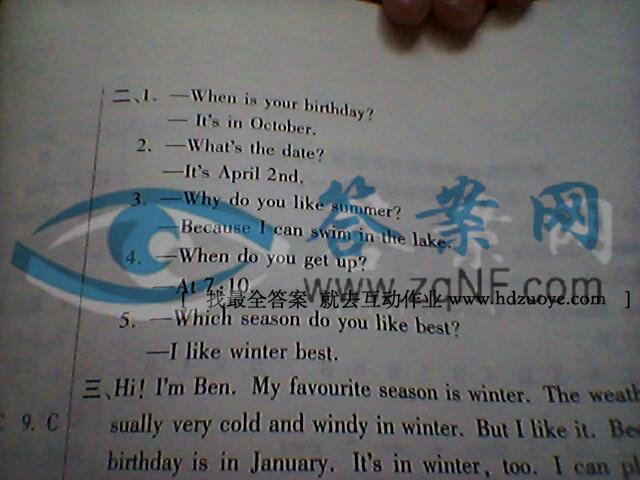 二、1. —When is your birthday?
— It's in October.
2. —What's the date?
—It's April 2nd.
3. —Why do you like summer?
—Because I can swim in the lake.
4. —When do you get up?
—At 7:10
5. —Which season do you like best?
—I like winter best.
三、Hi! I'm Ben. My favourite season is winter. The
9. C
sually very cold and windy in winter. But I like it.
birthday is in January. It's in winter, too. I can
答案网
www.zqNF.com
[ 找最全答案 就去互动作业 www.hdzuoye.com ]